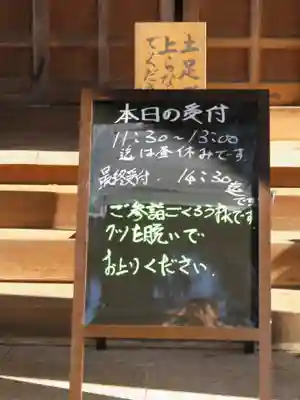 土足
上らな
てくださ
本日の受付
11:30〜13:00
迄は昼休みです
最終受付. 14:30
迄です
ご参詣ごくろう様です
クツを脱いで
お上りください.